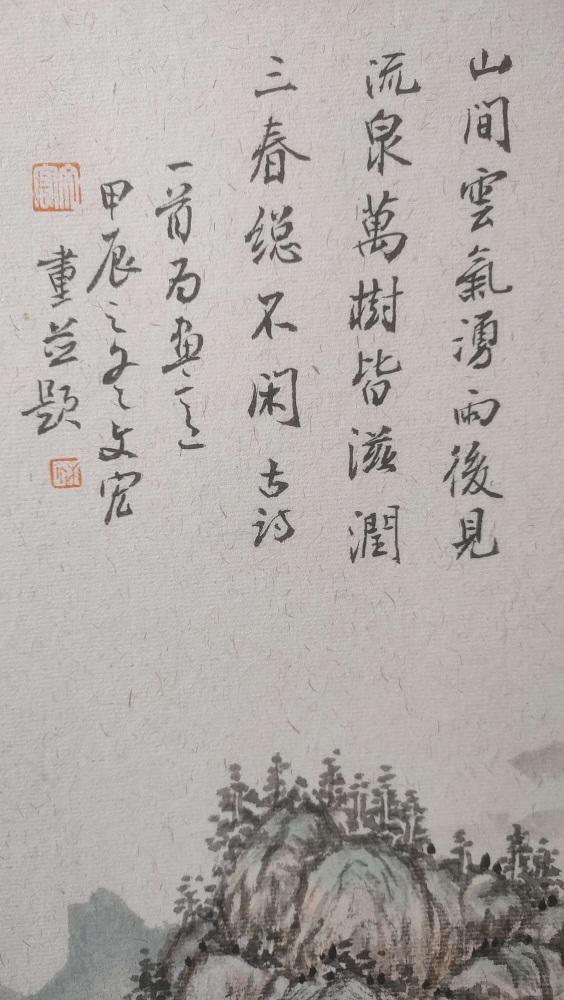 山間雲氣湧雨後見
流泉萬樹皆滋潤
三春総不閑古詩
一首為畫意
甲辰之冬文宏
畫並題